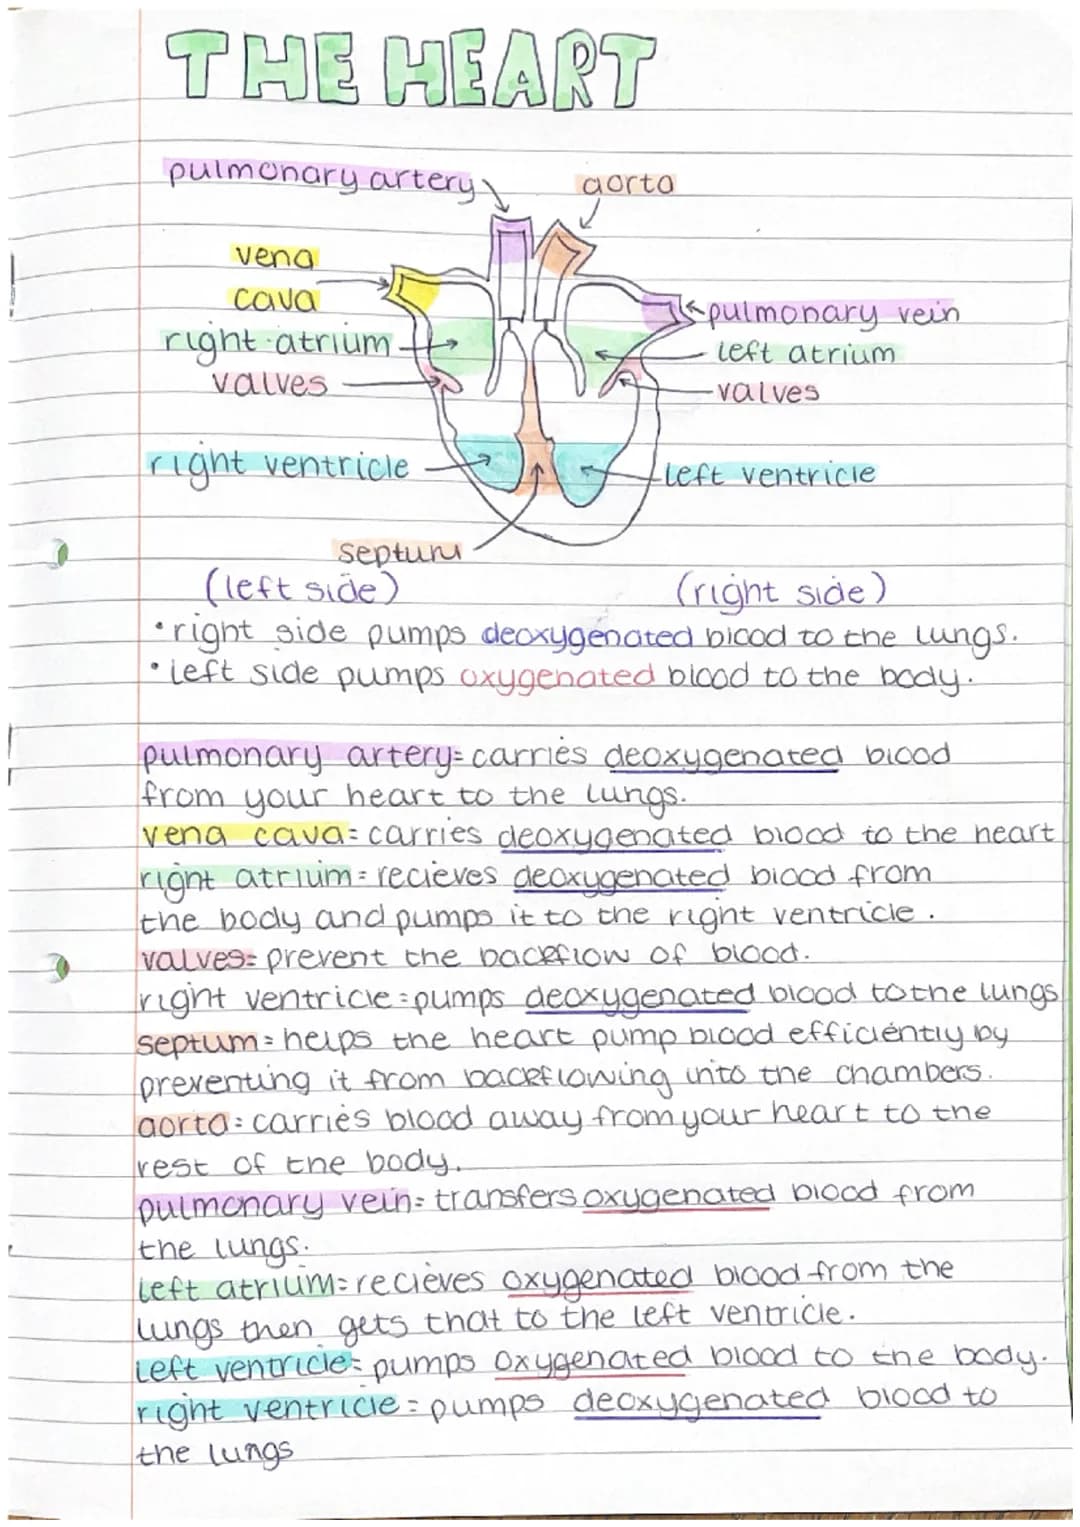 THE HEART
pulmonary artery
aorta
vena
cava
pulmonary vein
right atrium
left atrium
valves
valves
right ventricle
left ventricle
septum
(left side)
(right side)
•right side pumps deoxygenated blood to the lungs.
•left side pumps oxygenated blood to the body.
pulmonary artery= carries deoxygenated blood
from your heart to the lungs.
vena cava= carries deoxygenated blood to the heart
right atrium= recieves deoxygenated blood from
the body and pumps it to the right ventricle.
valves= prevent the backflow of blood.
right ventricle=pumps deoxygenated blood to the lungs
septum= helps the heart pump blood efficiently by
preventing it from backflowing into the chambers.
aorta= carries blood away from your heart to the
rest of the body.
pulmonary vein= transfers oxygenated blood from
the lungs.
left atrium=recieves oxygenated blood from the
lungs then gets that to the left ventricle.
left ventricle= pumps oxygenated blood to the body.
right ventricle= pumps deoxygenated blood to
the lungs